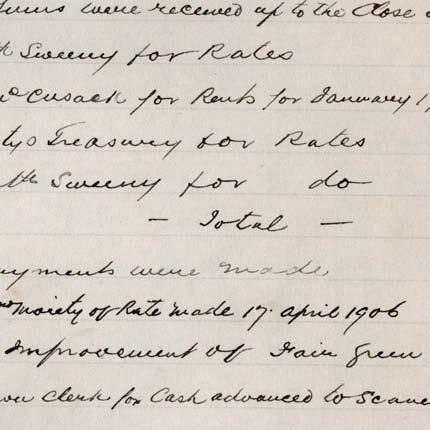 Sums were received up to the Close
th Sweeny for Rates
Cusack for Rents for January 1,
tys Treasury for Rates
th Sweeny for do
- Total -
yments were made
Moiety of Rate made 17. April 1906
Improvement of Fair Green
own Clerk for Cash advanced to